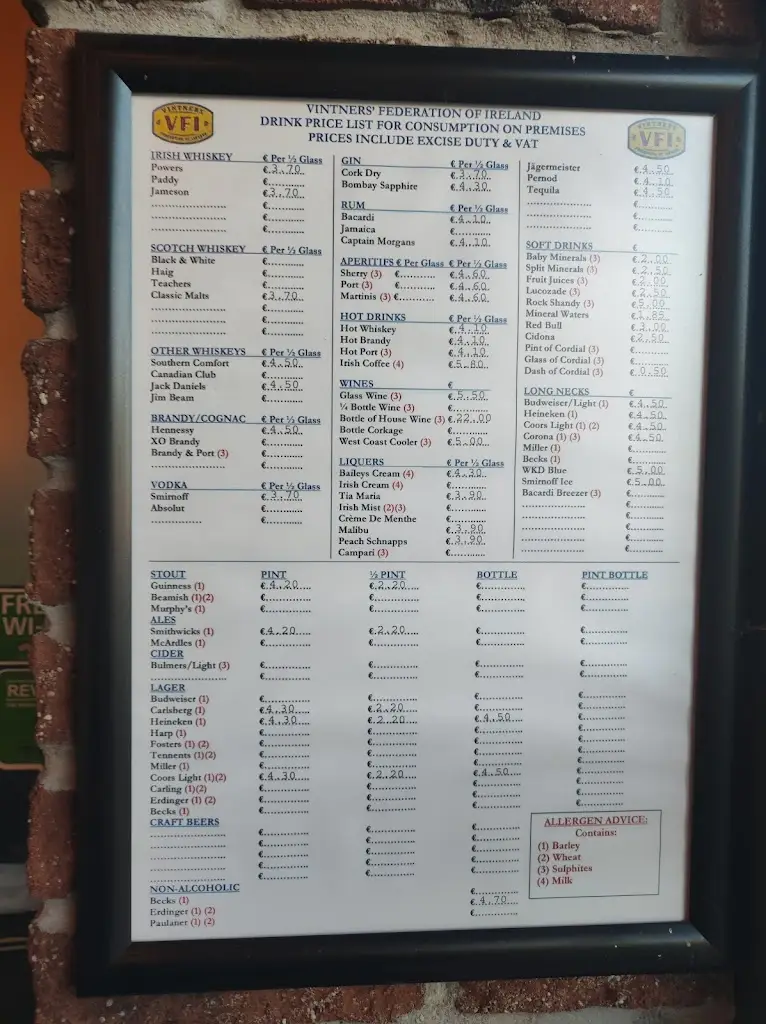 VINTNERS
VFI
VINTNERS' FEDERATION OF IRELAND
DRINK PRICE LIST FOR CONSUMPTION ON PREMISES
PRICES INCLUDE EXCISE DUTY & VAT
VINTNERS
VFI
IRISH WHISKEY € Per ½ Glass
Powers €3.70
Paddy €............
Jameson €3.70
.................... €............
.................... €............
.................... €............
SCOTCH WHISKEY € Per ½ Glass
Black & White €............
Haig €............
Teachers €............
Classic Malts €3.70
.................... €............
.................... €............
.................... €............
OTHER WHISKEYS € Per ½ Glass
Southern Comfort €4.50
Canadian Club €............
Jack Daniels €4.50
Jim Beam €............
BRANDY/COGNAC € Per ½ Glass
Hennessy €4.50
XO Brandy €............
Brandy & Port (3) €............
.................... €............
VODKA € Per ½ Glass
Smirnoff €3.70
Absolut €............
.............. €............
GIN € Per ½ Glass
Cork Dry €3.70
Bombay Sapphire €4.30
RUM € Per ½ Glass
Bacardi €4.10
Jamaica €............
Captain Morgans €4.10
APERITIFS € Per Glass € Per ½ Glass
Sherry (3) €........... €4.60
Port (3) €........... €4.60
Martinis (3) €........... €4.60
HOT DRINKS € Per ½ Glass
Hot Whiskey €4.10
Hot Brandy €4.10
Hot Port (3) €4.10
Irish Coffee (4) €5.80
WINES €
Glass Wine (3) €5.50
¼ Bottle Wine (3) €............
Bottle of House Wine (3) €22.00
Bottle Corkage €............
West Coast Cooler (3) €5.00
LIQUERS € Per ½ Glass
Baileys Cream (4) €4.30
Irish Cream (4) €............
Tia Maria €3.90
Irish Mist (2)(3) €............
Crème De Menthe €............
Malibu €3.90
Peach Schnapps €3.90
Campari (3) €............
Jägermeister €4.50
Pernod €4.10
Tequila €4.50
.................... €............
.................... €............
.................... €............
SOFT DRINKS €
Baby Minerals (3) €2.00
Split Minerals (3) €2.50
Fruit Juices (3) €2.00
Lucozade (3) €2.50
Rock Shandy (3) €5.00
Mineral Waters €1.85
Red Bull €3.00
Cidona €2.50
Pint of Cordial (3) €............
Glass of Cordial (3) €............
Dash of Cordial (3) €0.50
LONG NECKS €
Budweiser/Light (1) €4.50
Heineken (1) €4.50
Coors Light (1) (2) €4.50
Corona (1) (3) €4.50
Miller (1) €............
Becks (1) €............
WKD Blue €5.00
Smirnoff Ice €5.00
Bacardi Breezer (3) €............
.................... €............
.................... €............
.................... €............
.................... €............
.................... €............
STOUT PINT ½ PINT BOTTLE PINT BOTTLE
Guinness (1) €4.20 €2.20 €............ €............
Beamish (1)(2) €............ €............ €............ €............
Murphy's (1) €............ €............ €............ €............
ALES
Smithwicks (1) €4.20 €2.20 €............ €............
McArdles (1) €............ €............ €............ €............
CIDER
Bulmers/Light (3) €............ €............ €............ €............
.................... €............ €............ €............ €............
LAGER
Budweiser (1) €............ €............ €............ €............
Carlsberg (1) €4.30 €2.20 €............ €............
Heineken (1) €4.30 €2.20 €4.50 €............
Harp (1) €............ €............ €............ €............
Fosters (1) (2) €............ €............ €............ €............
Tennents (1)(2) €............ €............ €............ €............
Miller (1) €............ €............ €............ €............
Coors Light (1)(2) €4.30 €2.20 €4.50 €............
Carling (1)(2) €............ €............ €............ €............
Erdinger (1) (2) €............ €............ €............ €............
Becks (1) €............ €............ €............ €............
CRAFT BEERS
.................... €............ €............ €............
.................... €............ €............ €............
.................... €............ €............ €............
.................... €............ €............ €............
.................... €............ €............ €............
NON-ALCOHOLIC
Becks (1) €............
Erdinger (1) (2) €4.70
Paulaner (1) (2) €............
ALLERGEN ADVICE:
Contains:
(1) Barley
(2) Wheat
(3) Sulphites
(4) Milk